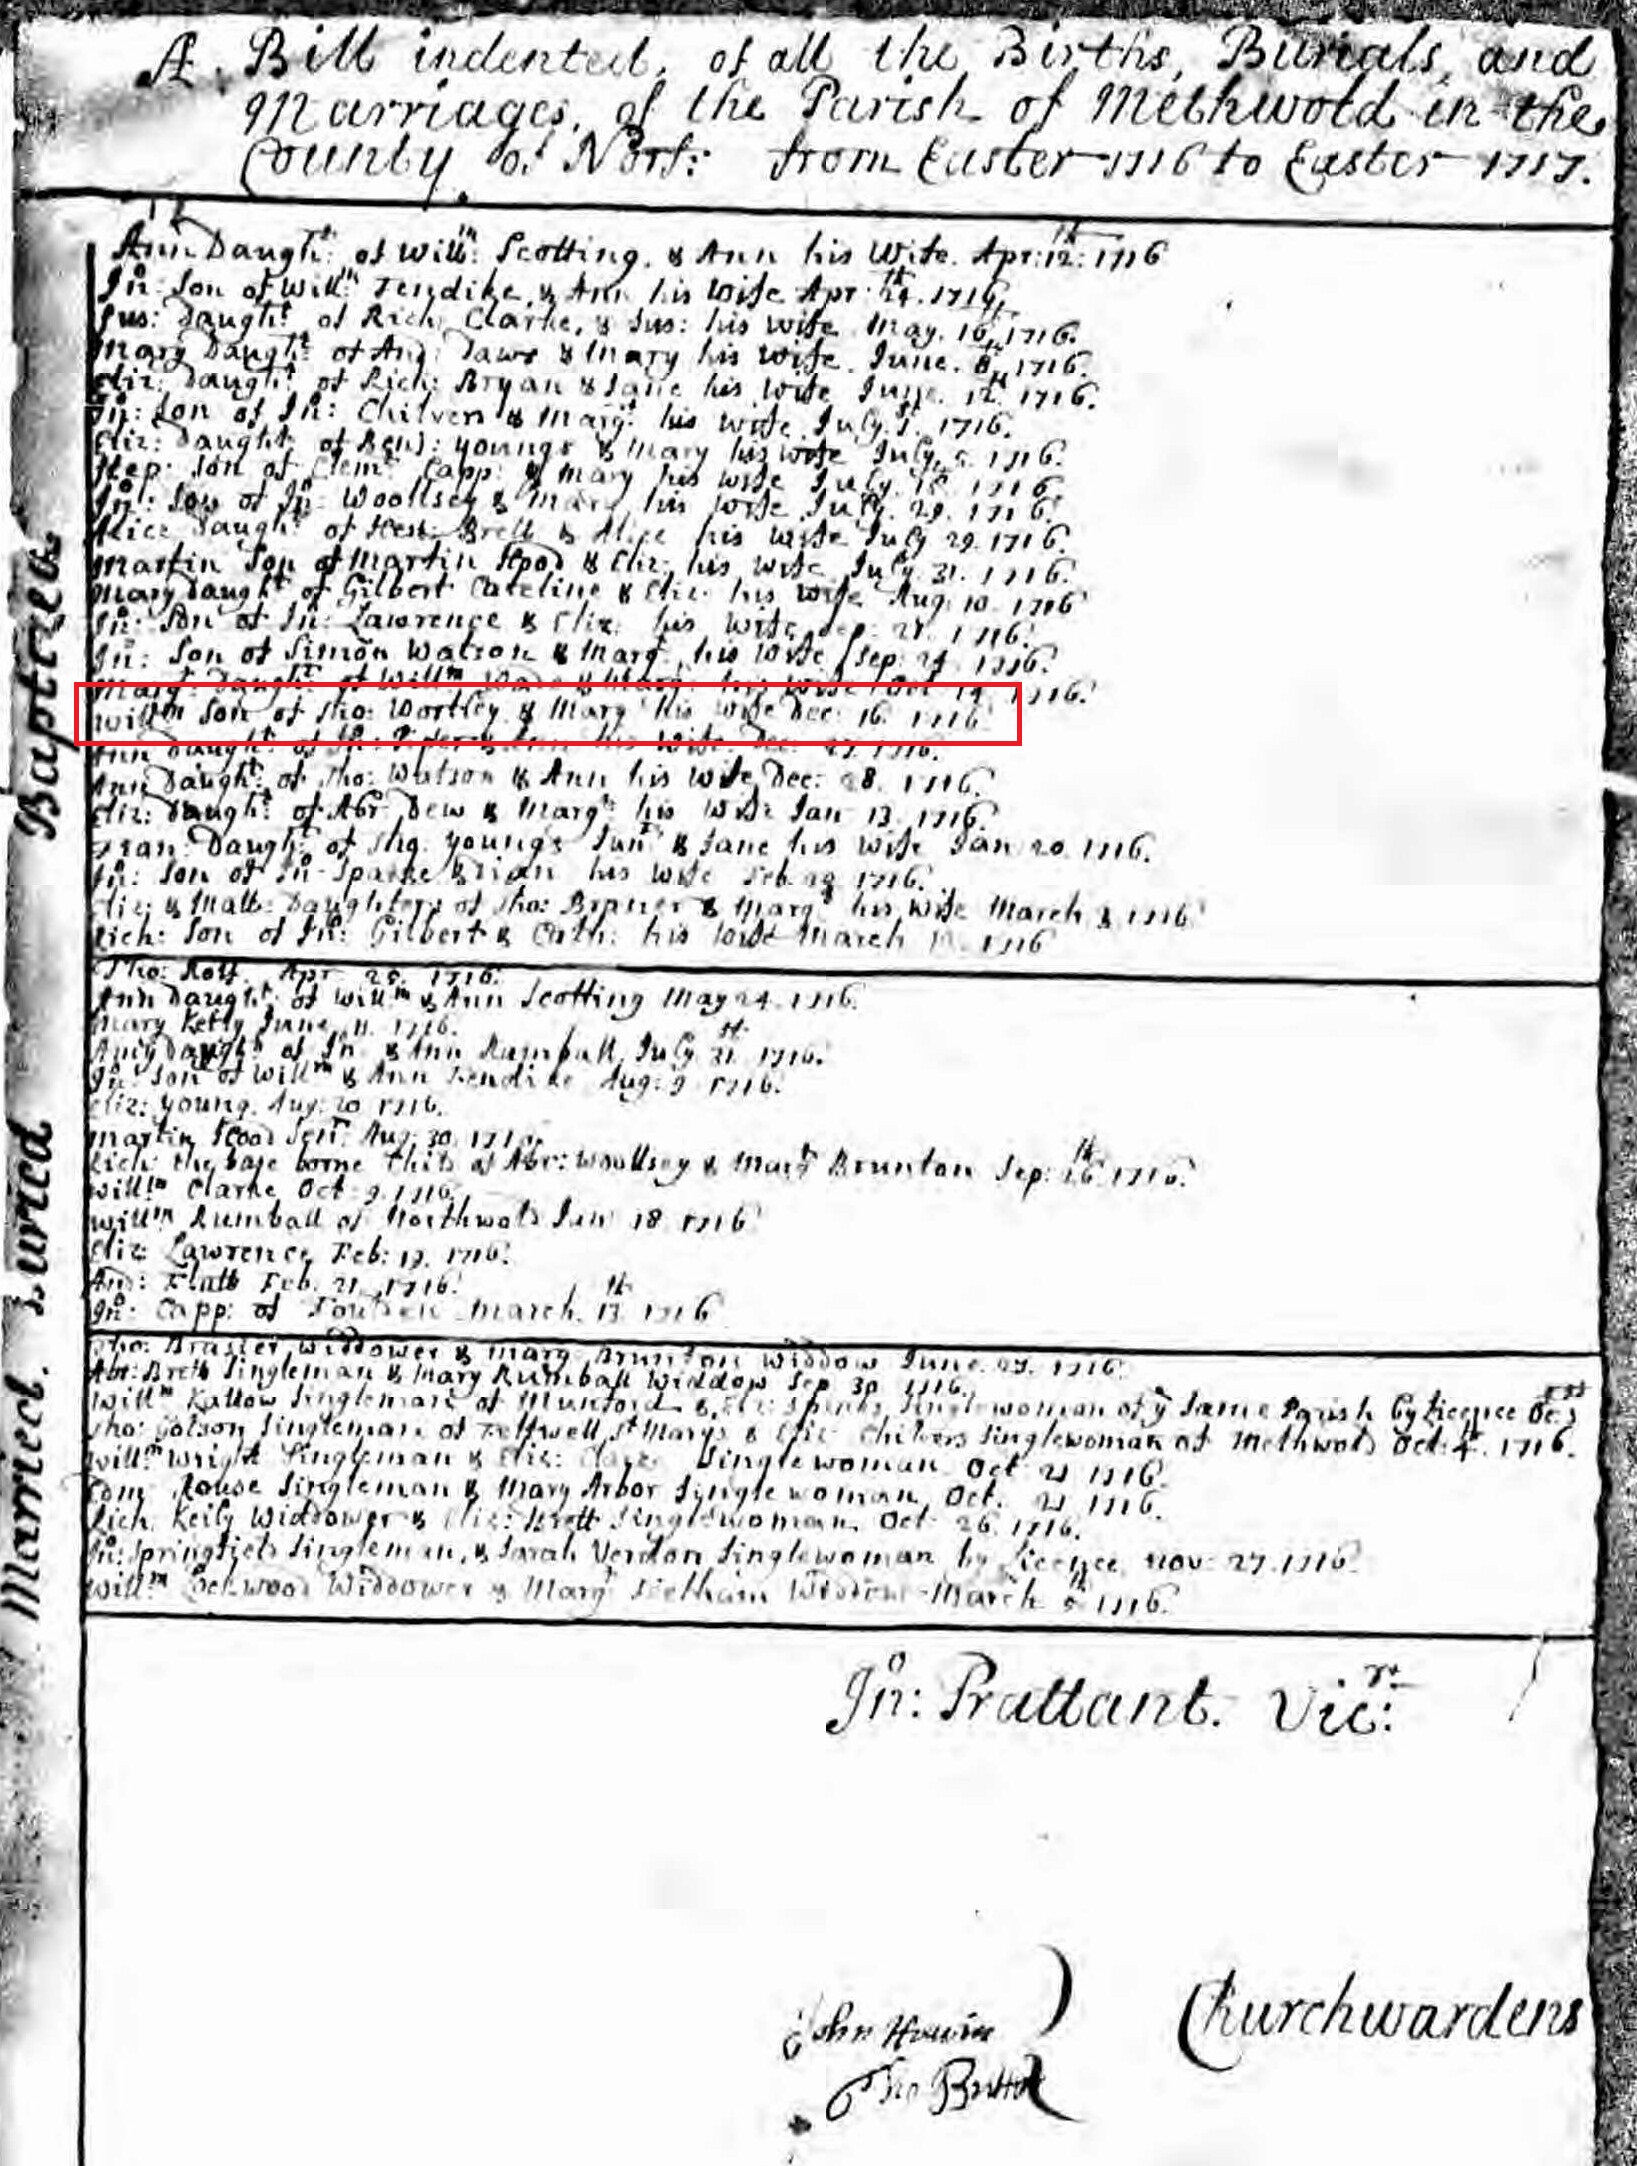 A Bill indented, of all the Births, Burials, and
Marriages, of the Parish of Methwold in the
County of Norf: from Easter 1716 to Easter 1717.
Baptized
Ann Daught: of Willm: Scotting, & Ann his Wife. Apr: 12th: 1716
Jno: Son of Willm: Tendike, & Ann his Wife Apr: 24th. 1716
Sus: Daught: of Rich: Clarke, & Sus: his wife May. 10, 1716.
Mary Daught: of And: Daws & Mary his wife. June. 8, 1716.
Eliz: Daught: of Rich: Bryan & Jane his wife June. 12th. 1716.
Jno: Son of Jno: Chilvers & Margt: his wife July. 1. 1716.
Eliz: Daught: of Benj: Youngs & Mary his wife July. 1716.
Step: Son of Clemt: Capp: & Mary his wife July. 15. 1716
Jno: Son of Jno: Woollsey & Mary his wife July. 29. 1716.
Alice Daught: of Brett & Alice his wife July 29. 1716.
Martin Son of Martin & Eliz: his wife July. 31. 1716.
Mary Daught: of Gilbert Cateline & Eliz: his wife Aug: 10. 1716
Jno: Son of Jno: Lawrence & Eliz: his wife Sep: 1716.
Jno: Son of Simon Watson & Margt: his wife Sep: 1716.
Margt: Daught: of Willm Wade & Margt: his wife Oct 14. 1716.
Willm Son of Tho: Wortley & Margt his wife Dec: 16. 1716.
Ann Daught: of Jno: Piper & Ann his wife. Dec: 27. 1716.
Ann Daught: of Tho: Watson & Ann his wife, Dec: 28. 1716.
Eliz: Daught: of Abr: Dew & Margt: his wife Jan 13. 1716.
Fran: Daught: of Tho: Youngs Junr & Jane his wife Jan 20. 1716.
Jno: Son of Jno: Sparke & his wife Feb. 1716.
Eliz: & Matt: Daughters of Tho: & Margt his wife March 1716
Rich: Son of Jno: Gilbert & Cath: his wife March 1716
Buried
Tho: Rolf. Apr 25. 1716.
Ann Daught: of Willm & Ann Scotting May 24. 1716.
Mary Ketly June. 11. 1716.
Daught: of Jno & Ann Rumball, July 31st 1716.
Jno: Son of Willm & Ann Tendike Aug: 9 1716.
Eliz: Young. Aug: 20 1716.
Martin Senr: Aug. 30. 1716.
Rich: the base borne Child of Abr: Woollsey & Margt Brunton Sep: 26th 1716.
Willm Clarke Oct 9. 1716.
Willm Rumball of Northwold Jan 18. 1716
Eliz: Lawrence, Feb: 19. 1716.
And: Flatt Feb. 21. 1716.
Jno: Capp: of March. 13th 1716
Married.
Tho: Brasier Widdower & Mary Brunton Widdow June. 1716.
Abr: Brett Singleman & Mary Rumball Widdow Sep 30 1716.
Willm Kallow Singleman of Munford & Eliz: Spinks Singlewoman of ye same Parish by Licence Oc: 3
Tho: Singleman of Feltwell St Marys & Eliz: Chilvers Singlewoman of Methwold Oct: 4. 1716.
Willm Wright Singleman & Eliz: Singlewoman Oct 21 1716.
Rouse Singleman & Mary Arbor Singlewoman, Oct. 21 1716.
Rich: Keily Widdower & Eliz: Brett Singlewoman. Oct 26. 1716.
Jno: Springfield Singleman, & Sarah Verdon Singlewoman by Licence, Nov: 27. 1716.
Willm Lockwood Widdower & Margt Widdow March 1716.
Jno: Prattant. Vicr:
John
Tho
Churchwardens